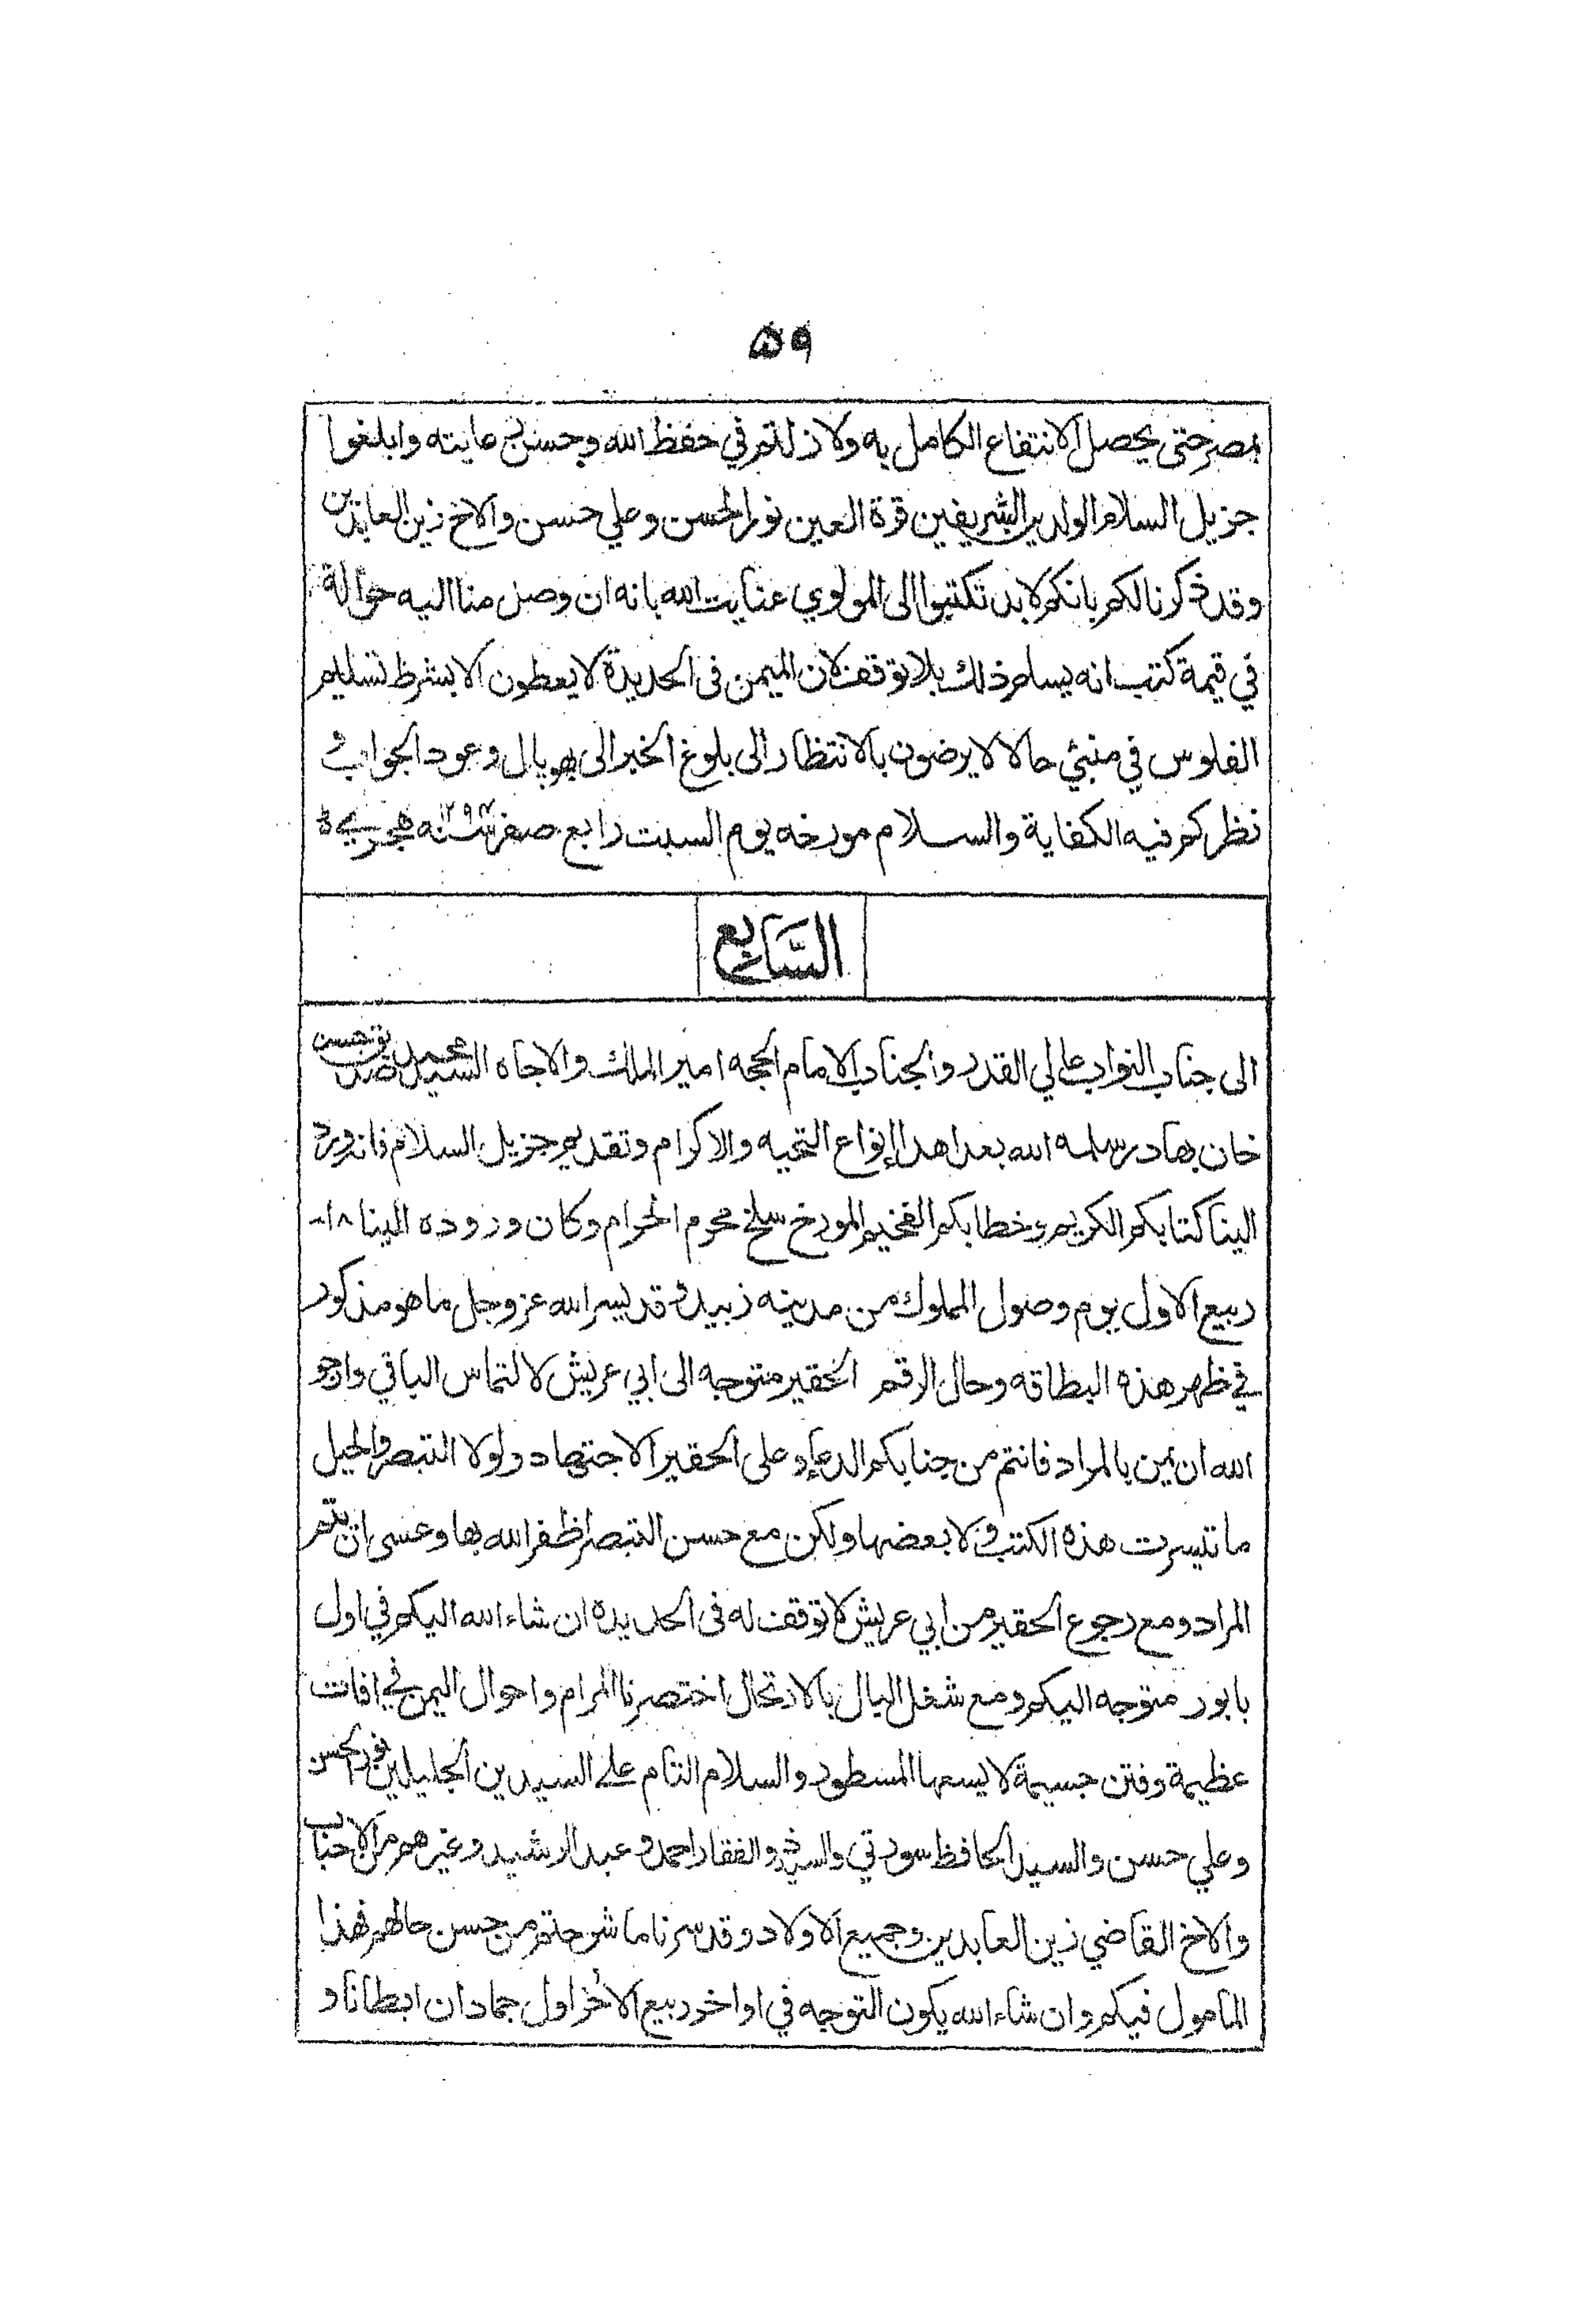 ۵۹
بمصر حتى يحصل الانتفاع الكامل به ولا زلتم في حفظ الله وحسن رعايته وابلغوا
جزيل السلام الولدين الشريفين قرة العين نور الحسن وعلي حسن والاخ زين العابدين
وقد ذكرنا لكم بانكم لا بد تكتبوا الى المولوي عنايت الله بانه ان وصل منا اليه حوالة
في قيمة كتب انه يسلم ذلك بلا توقف لان الميمن في الحديدة لا يعطون الا بشرط تسليم
الفلوس في منبئي حالا لا يرضون بالانتظار الى بلوغ الخبر الى بهوپال وعود الجواب و
نظركم فيه الكفاية والسلام مورخه يوم السبت رابع صفر سنه ۱۲۹۷ هجرية
السابع
الى جناب النواب عالي القدر والجناب الامام الحجه امير الملك والاجاه السيد محمد صديق حسن
خان بهادر سلمه الله بعد اهداء انواع التحيه والاكرام وتقديم جزيل السلام فانه ورد
الينا كتابكم الكريم وخطابكم الفخيم المورخ سلخ محرم الحرام وكان وروده الينا ۱۸
ربيع الاول يوم وصول المملوك من مدينه زبيد وقد يسر الله عز وجل ما هو مذكور
في ظهر هذه البطاقه وحال الرقم الحقير متوجه الى ابي عريش لالتماس الباقي وارجو
الله ان يمن بالمراد فانتم من جنابكم الدعاء وعلى الحقير الاجتهاد ولولا التبصر والحيل
ما تيسرت هذه الكتب ولا بعضها ولكن مع حسن التبصر اظفر الله بها وعسى ان يتم
المراد ومع رجوع الحقير من ابي عريش لا توقف له في الحديدة ان شاء الله اليكم في اول
بابور متوجه اليكم ومع شغل البال بالارتحال اختصرنا المرام واحوال اليمن في افات
عظيمة وفتن جسيمة لا يسعها المسطور والسلام التام على السيدين الجليلين نور الحسن
وعلي حسن والسيد الحافظ سورتي والسيد ذو الفقار احمد و عبد الرشيد وغيرهم من الاحباب
والاخ القاضي زين العابدين وجميع الاولاد وقد سرنا ما شرحتم من حسن حالهم فهذا
المامول فيكم وان شاء الله يكون التوجه في اواخر ربيع الاخر اول جماد ان ابطانا و